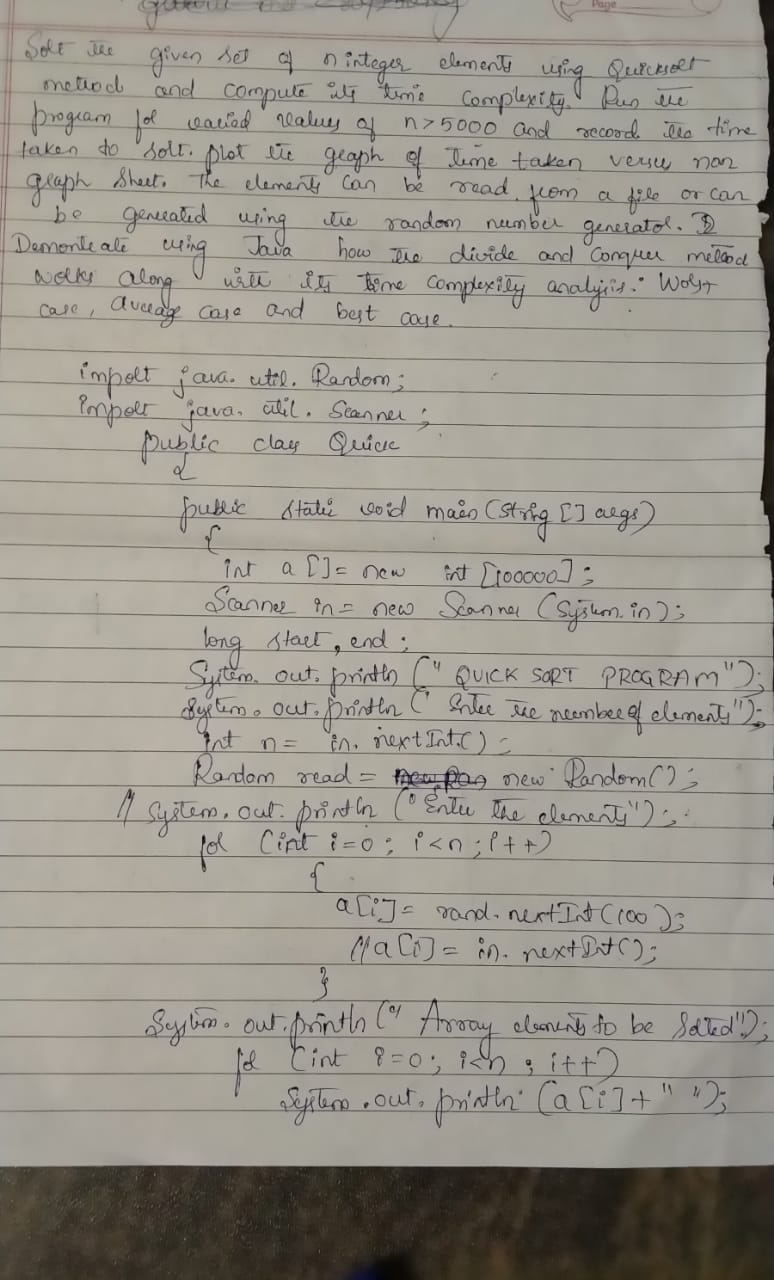 Page
Sort the given set of n integer elements using Quicksort
method and compute its time complexity. Run the
program for varied values of n>5000 and record the time
taken to sort. plot the graph of time taken versus n on
graph sheet. The elements can be read from a file or can
be generated using the random number generator.
Demonstrate using Java how the divide and Conquer method
works along with its time complexity analysis: Worst
case, average case and best case.
import java. util. Random;
import java. util. Scanner;
public class Quick
{
public static void main (String [] args)
{
int a []= new int [100000];
Scanner in = new Scanner (System.in);
long start, end;
System. out. println (" QUICK SORT PROGRAM");
System. out. println (" Enter the number of elements");
int n = in. nextInt();
Random read = new Random();
// System. out. println ("Enter the elements");
for (int i=0; i<n; i++)
{
a[i]= rand. nextInt(100);
//a[i]= in. nextInt();
}
System. out. println (" Array elements to be sorted");
for (int i=0; i<n; i++)
System. out. println (a[i]+" ");